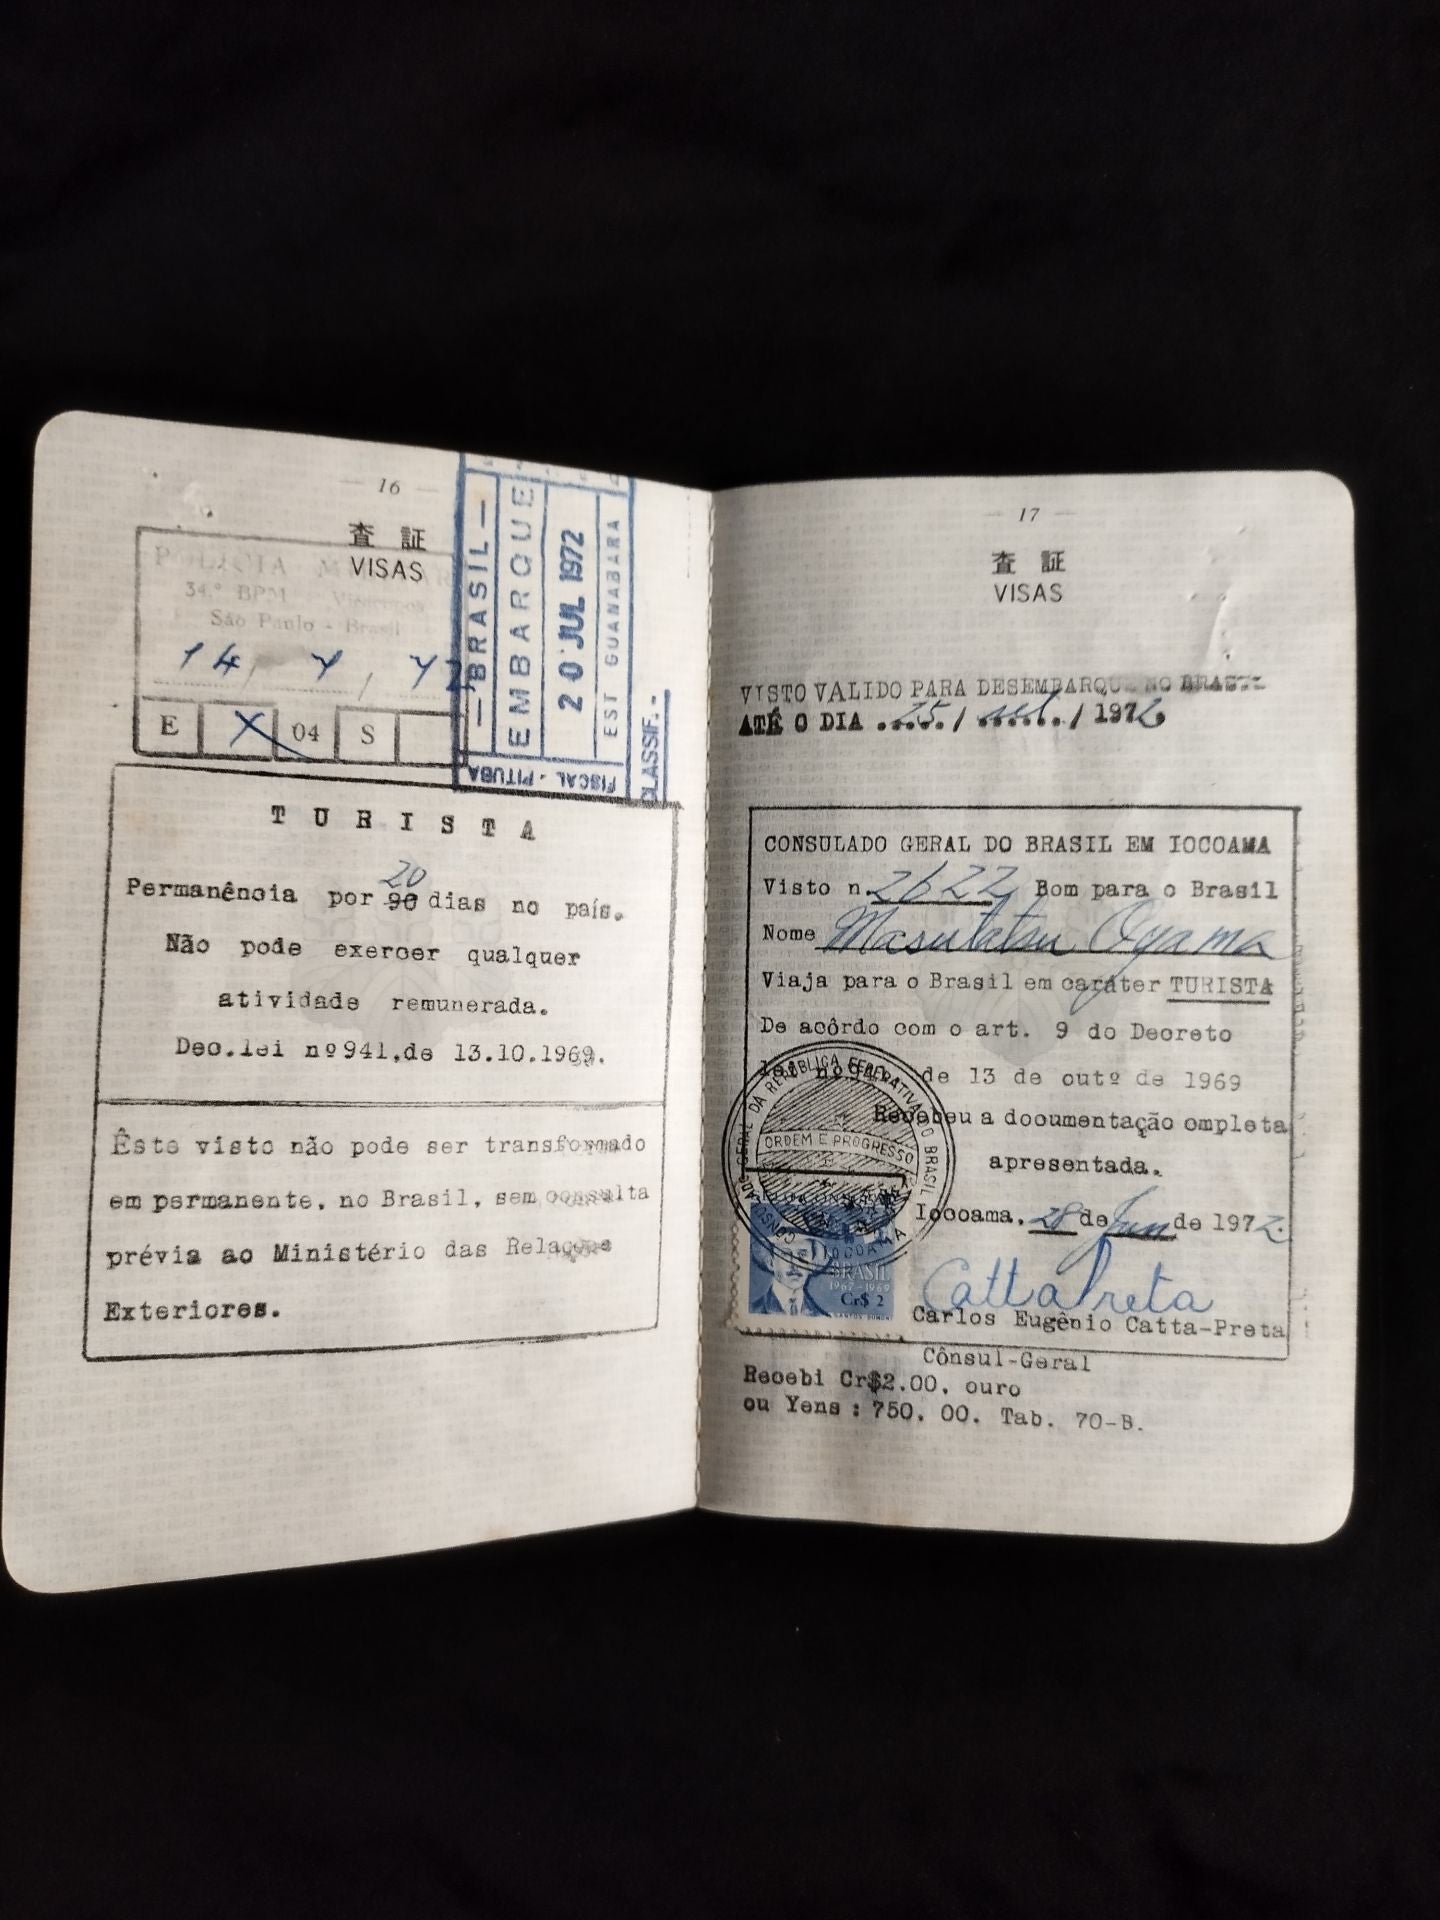 — 16 —
査 証
VISAS
POLICIA
34.º BPM
São Paulo - Brasil
14 / 7 / 72
E X 04 S
— BRASIL —
EMBARQUE
20 JUL 1972
EST GUANABARA
FISCAL - PITUBA
CLASSIF. -
TURISTA
20
Permanência por 90 dias no país.
Não pode exercer qualquer
atividade remunerada.
Dec.lei nº941,de 13.10.1969.
Êste visto não pode ser transformado
em permanente, no Brasil, sem consulta
prévia ao Ministério das Relações
Exteriores.
— 17 —
査 証
VISAS
VISTO VALIDO PARA DESEMBARQUE NO BRASIL
ATÉ O DIA 25 / set / 1972
CONSULADO GERAL DO BRASIL EM IOCOAMA
Visto n. 2622 Bom para o Brasil
Nome Masutatsu Oyama
Viaja para o Brasil em caráter TURISTA
De acôrdo com o art. 9 do Decreto
lei nº941 de 13 de outº de 1969
Recebeu a documentação ompleta
apresentada.
Iocoama, 28 de Jun de 1972.
CONSULADO GERAL DA REPÚBLICA FEDERATIVA DO BRASIL
ORDEM E PROGRESSO
IOCOAMA
BRASIL
1967-1969
Cr$ 2
SANTOS DUMONT
Catta Preta
Carlos Eugênio Catta-Preta
Cônsul-Geral
Recebi Cr$2.00, ouro
ou Yens : 750. 00. Tab. 70-B.